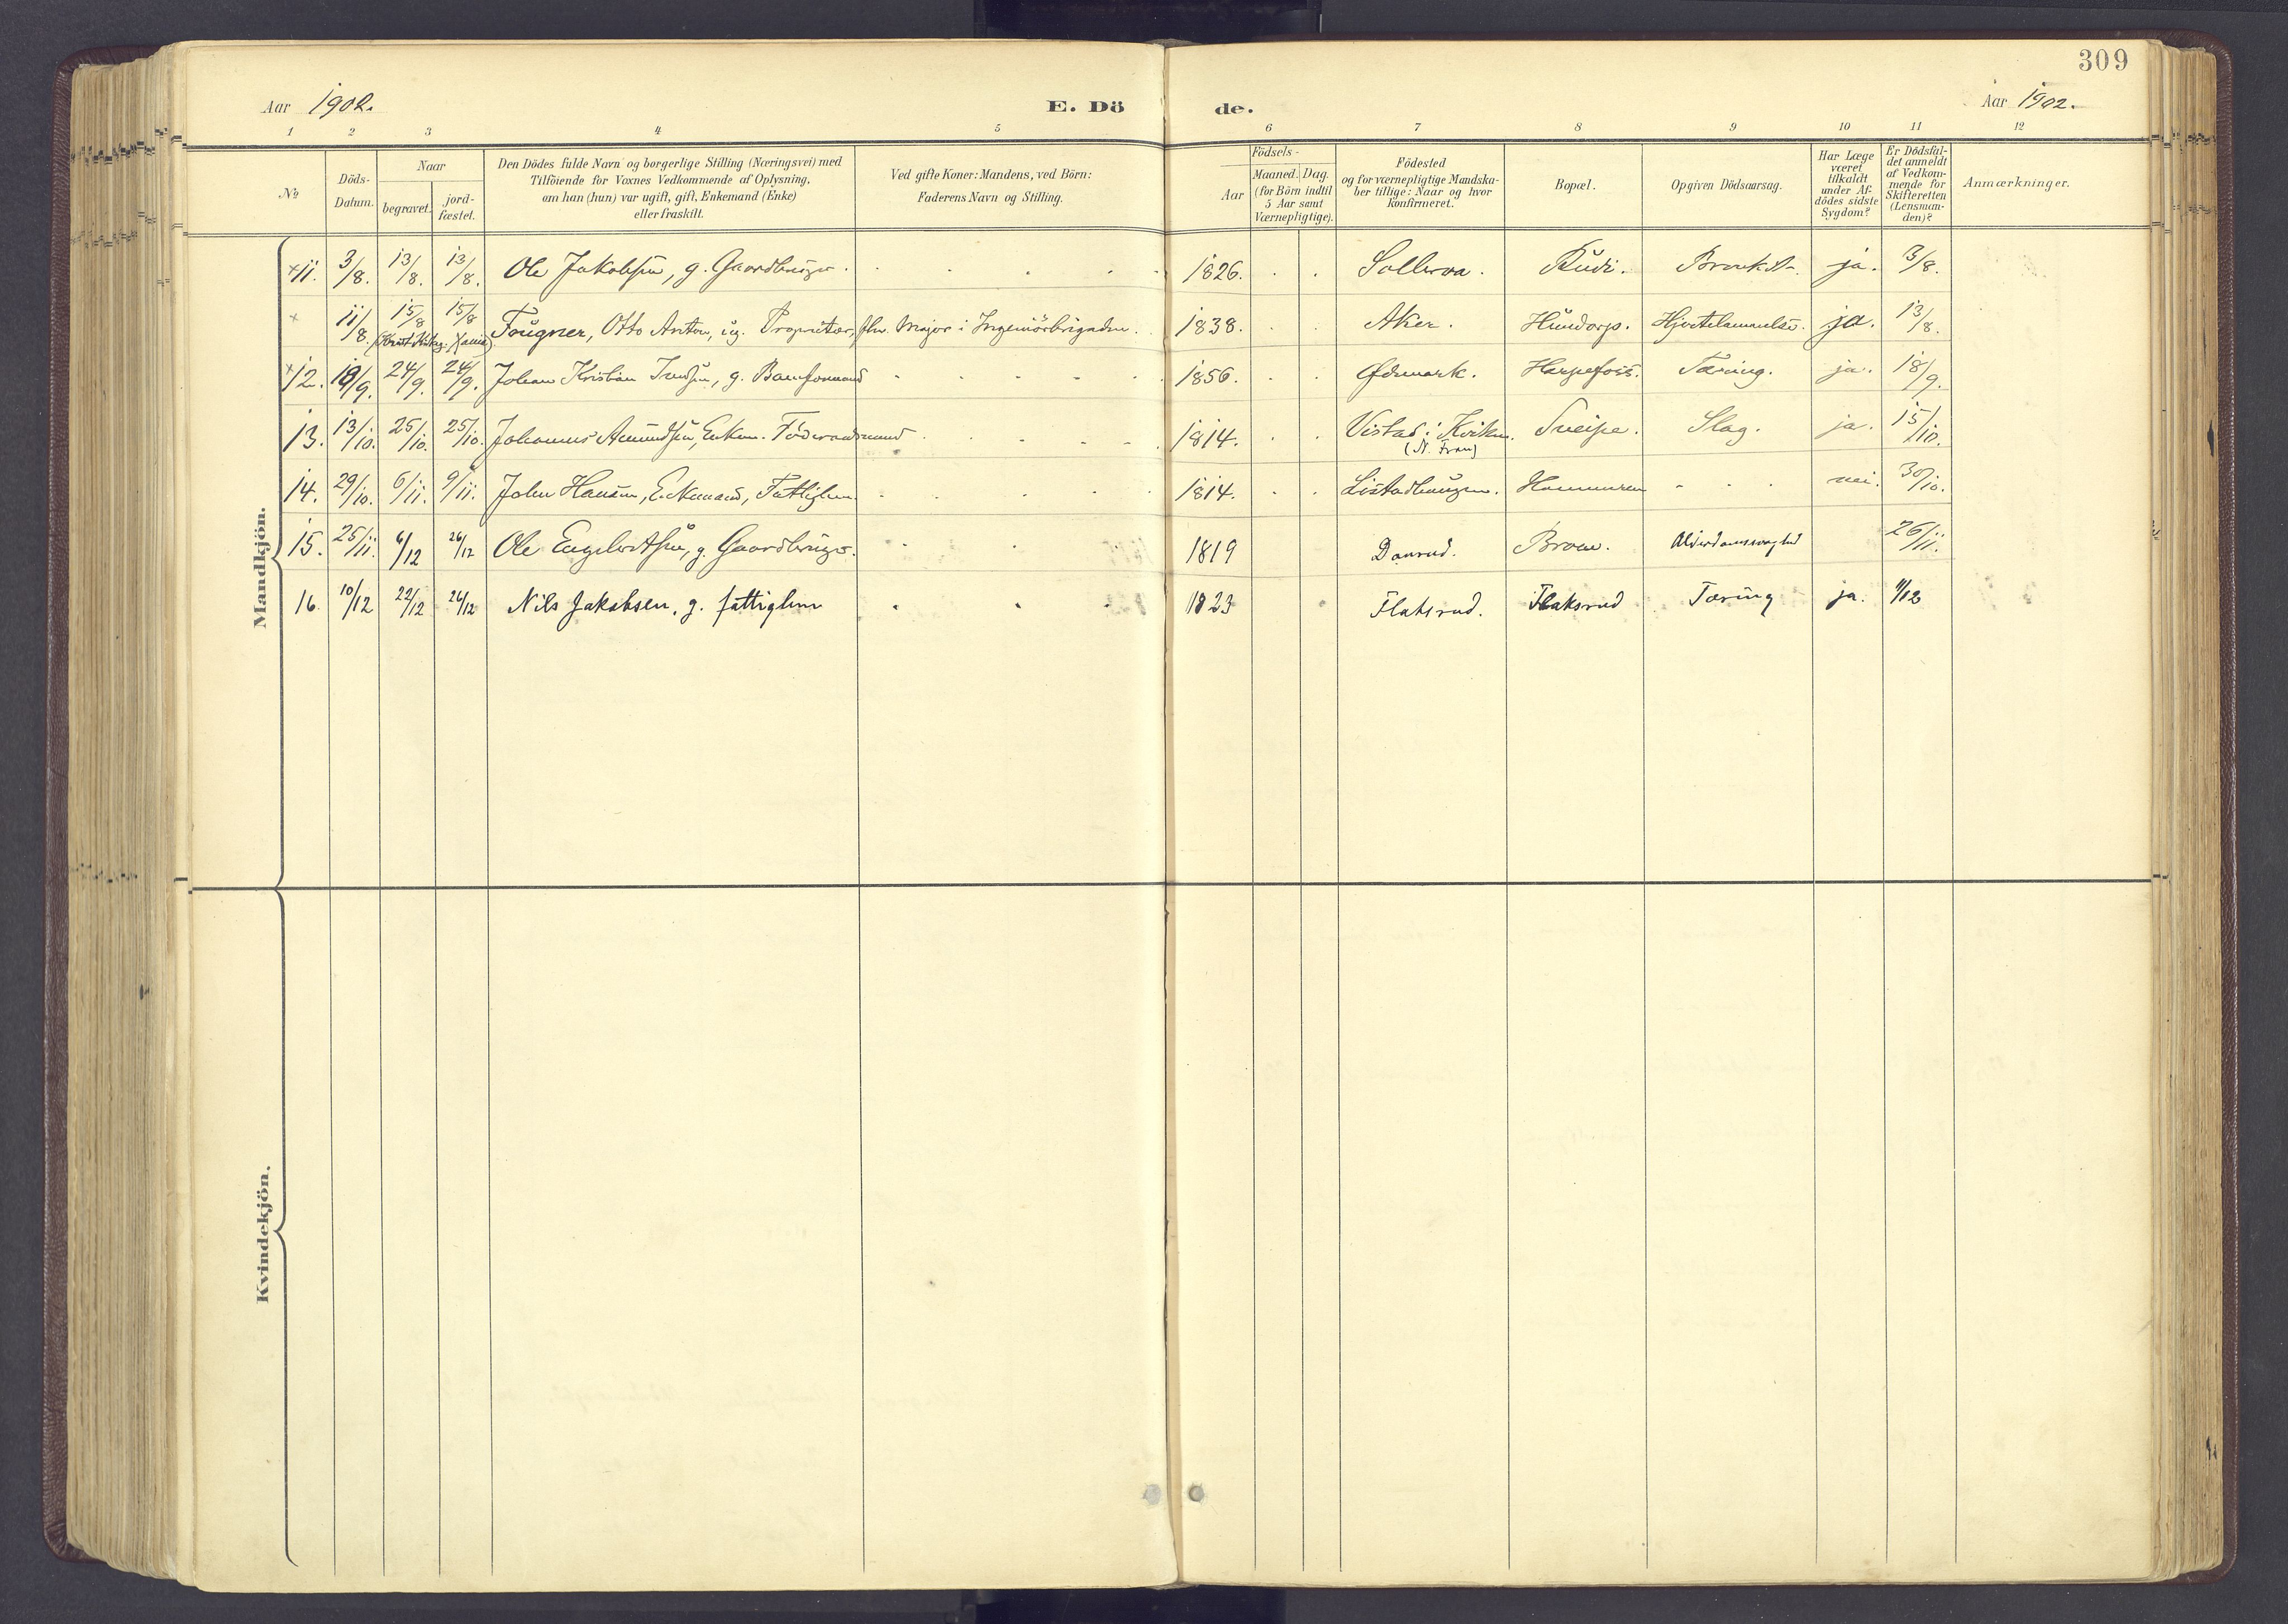 309
Aar 1902.
E. Dö
de.
Aar 1902.
1 2 3 4 5 6 7 8 9 10 11 12
No
Döds-
Datum.
Naar
begravet.
jord-
fæstet.
Den Dödes fulde Navn og borgerlige Stilling (Næringsvei) med
Tilföiende for Voxnes Vedkommende af Oplysning,
om han (hun) var ugift, gift, Enkemand (Enke)
eller fraskilt.
Ved gifte Koner: Mandens, ved Börn:
Faderens Navn og Stilling.
Födsels-
Aar
Maaned.
Dag.
(for Börn indtil
5 Aar samt
Værnepligtige).
Födested
og for værnepligtige Mandska-
ber tillige: Naar og hvor
konfirmeret.
Bopæl.
Opgiven Dödsaarsag.
Har Læge
været
tilkaldt
under Af-
dödes sidste
Sygdom?
Er Dödsfal-
det anmeldt
af Vedkom-
mende for
Skifteretten
(Lensman-
den)?
Anmærkninger.
Mandkjön.
× 11. 3/8. 13/8. 13/8. Ole Jakobsen, g. Gaardbruger. 1826. Rudi. ja. 3/8.
× 11/8. 15/8 15/8 Fougner, Otto Anton, ug. Proprietær, fhv. Major i Ingeniörbrigaden. 1838. Aker. Hundorp. Hjertelammelse. ja. 13/8.
× 12. 18/9. 24/9. 24/9. Johan Kristian g. 1856. Ødemark. Harpefoss. Tæring. ja. 18/9.
13. 13/10. 25/10. 25/10. Johannes Amundsen, Enkem. Föderaadsmand 1814. Vistad i Kvikne. Sveipe. Slag. ja. 15/10.
(N. Fron)
14. 29/10. 6/11. 9/11. John Hansen, Enkemand, Fattiglem. 1814. Listadhaugen. nei. 30/10.
15. 25/11. 6/12 26/12 Ole Engebretsen, g. Gaardbruger. 1819 Alderdomssvaghed 26/11.
16. 10/12 22/12 26/12 Nils Jakobsen, g. fattiglem 1823 Flaksrud. Flaksrud Tæring ja. 11/12
Kvindekjön.